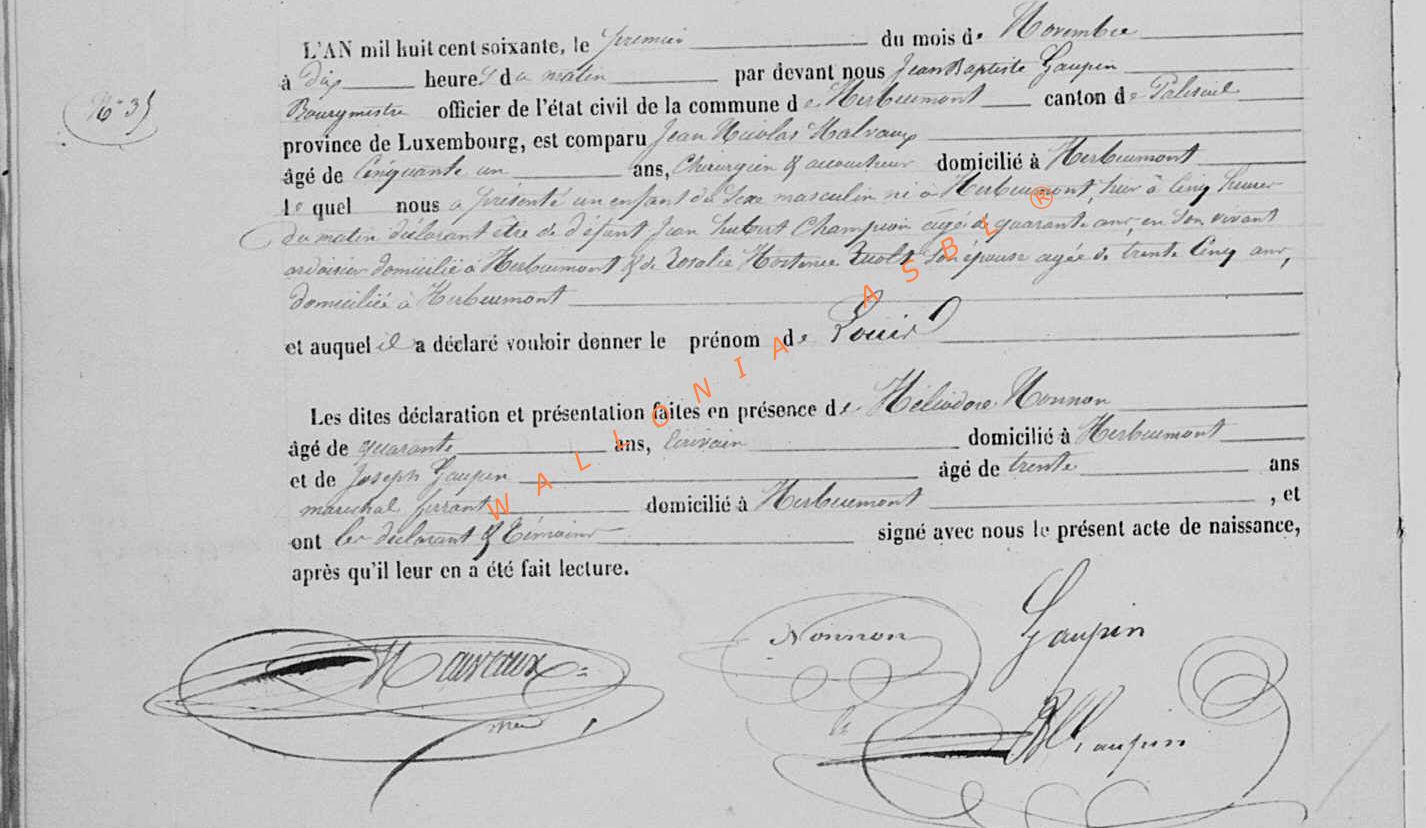 L'AN mil huit cent soixante, le premier du mois de Novembre
à Dix heures du matin par devant nous Jean Baptiste Gaupin
N° 35
Bourgmestre officier de l'état civil de la commune de Herbeumont canton de Paliseul
province de Luxembourg, est comparu Jean Nicolas Malvaux
âgé de Cinquante un ans, Chirurgien & accoucheur domicilié à Herbeumont
lequel nous a présenté un enfant du sexe masculin né à Herbeumont, hier à Cinq heures
du matin déclarant être de défunt Jean hubert Champion agé de quarante ans, en son vivant
ardoisier domicilié à Herbeumont & de Rosalie Hortence son épouse agée de trente Cinq ans,
domiciliée à Herbeumont
et auquel il a déclaré vouloir donner le prénom de Louis
Les dites déclaration et présentation faites en présence de Héliodore Nonnon
âgé de quarante ans, Ecrivain domicilié à Herbeumont
et de Joseph Gaupin âgé de trente ans
maréchal ferrant domicilié à Herbeumont , et
ont les déclarant & témoins signé avec nous le présent acte de naissance,
après qu'il leur en a été fait lecture.
Nonnon Gaupin
Malvaux
Gaupin
WALLONIA ASBL ®